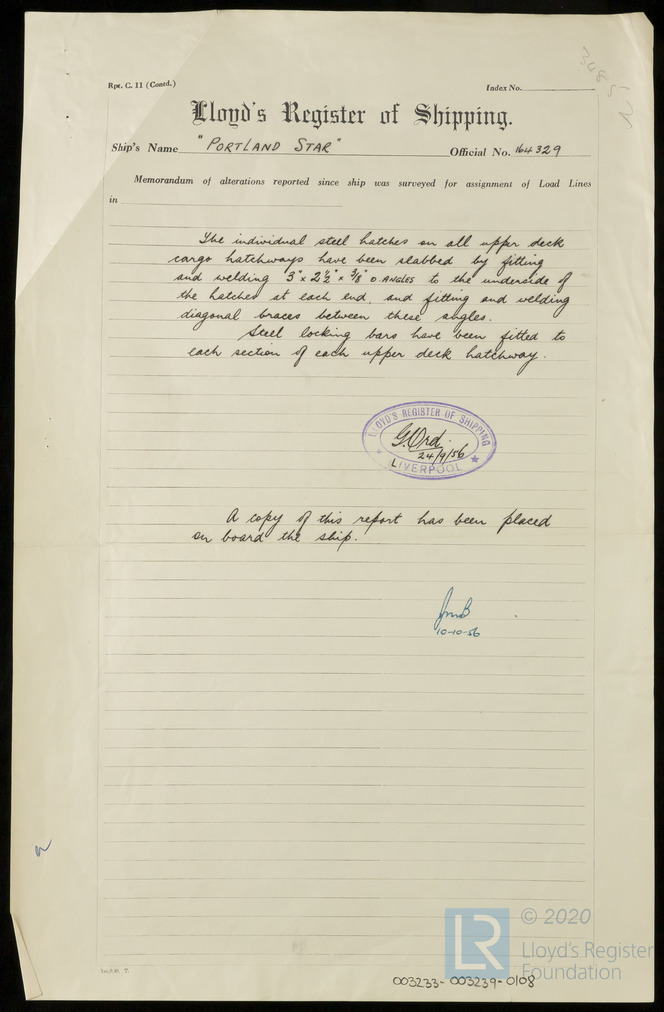 Rpt. C. 11 (Contd.)
Index No.
Lloyd's Register of Shipping.
Ship's Name "PORTLAND STAR" Official No. 164329
Memorandum of alterations reported since ship was surveyed for assignment of Load Lines
in
The individual steel hatches on all upper deck
cargo hatchways have been slabbed by fitting
and welding 3" x 2½" x 3/8" O ANGLES to the underside of
the hatches at each end, and fitting and welding
diagonal braces between these angles.
Steel locking bars have been fitted to
each section of each upper deck hatchway.
LLOYD'S REGISTER OF SHIPPING
G. Ord.
24/9/56
LIVERPOOL
A copy of this report has been placed
on board the ship.
10-10-56
LR © 2020
Lloyd's Register
Foundation
003233-003239-0108